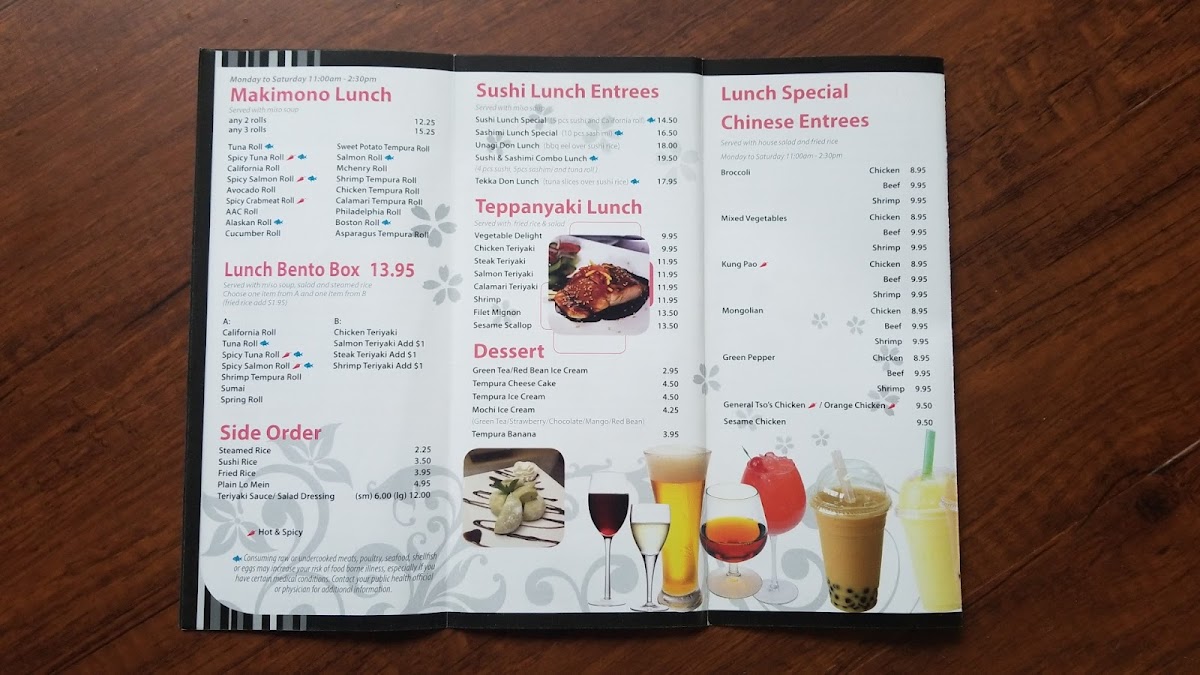 Monday to Saturday 11:00am - 2:30pm
Makimono Lunch
Served with miso soup
any 2 rolls 12.25
any 3 rolls 15.25
Tuna Roll
Spicy Tuna Roll
California Roll
Spicy Salmon Roll
Avocado Roll
Spicy Crabmeat Roll
AAC Roll
Alaskan Roll
Cucumber Roll
Sweet Potato Tempura Roll
Salmon Roll
Mchenry Roll
Shrimp Tempura Roll
Chicken Tempura Roll
Calamari Tempura Roll
Philadelphia Roll
Boston Roll
Asparagus Tempura Roll
Lunch Bento Box 13.95
Served with miso soup, salad and steamed rice
Choose one item from A and one item from B
(fried rice add $1.95)
A:
California Roll
Tuna Roll
Spicy Tuna Roll
Spicy Salmon Roll
Shrimp Tempura Roll
Sumai
Spring Roll
B:
Chicken Teriyaki
Salmon Teriyaki Add $1
Steak Teriyaki Add $1
Shrimp Teriyaki Add $1
Side Order
Steamed Rice 2.25
Sushi Rice 3.50
Fried Rice 3.95
Plain Lo Mein 4.95
Teriyaki Sauce/ Salad Dressing (sm) 6.00 (lg) 12.00
Hot & Spicy
Consuming raw or undercooked meats, poultry, seafood, shellfish
or eggs may increase your risk of food borne illness, especially if you
have certain medical conditions. Contact your public health official
or physician for additional information.
Sushi Lunch Entrees
Served with miso soup
Sushi Lunch Special pcs sushi and California roll) 14.50
Sashimi Lunch Special (10 pcs sashimi) 16.50
Unagi Don Lunch (bbq eel over sushi rice) 18.00
Sushi & Sashimi Combo Lunch 19.50
(4 pcs sushi, 5pcs sashimi and tuna roll)
Tekka Don Lunch (tuna slices over sushi rice) 17.95
Teppanyaki Lunch
Served with fried rice & salad
Vegetable Delight 9.95
Chicken Teriyaki 9.95
Steak Teriyaki 11.95
Salmon Teriyaki 11.95
Calamari Teriyaki 11.95
Shrimp 11.95
Filet Mignon 13.50
Sesame Scallop 13.50
Dessert
Green Tea/Red Bean Ice Cream 2.95
Tempura Cheese Cake 4.50
Tempura Ice Cream 4.50
Mochi Ice Cream 4.25
(Green Tea/Strawberry/Chocolate/Mango/Red Bean)
Tempura Banana 3.95
Lunch Special
Chinese Entrees
Served with house salad and fried rice
Monday to Saturday 11:00am - 2:30pm
Broccoli Chicken 8.95
Beef 9.95
Shrimp 9.95
Mixed Vegetables Chicken 8.95
Beef 9.95
Shrimp 9.95
Kung Pao Chicken 8.95
Beef 9.95
Shrimp 9.95
Mongolian Chicken 8.95
Beef 9.95
Shrimp 9.95
Green Pepper Chicken 8.95
Beef 9.95
Shrimp 9.95
General Tso's Chicken / Orange Chicken 9.50
Sesame Chicken 9.50